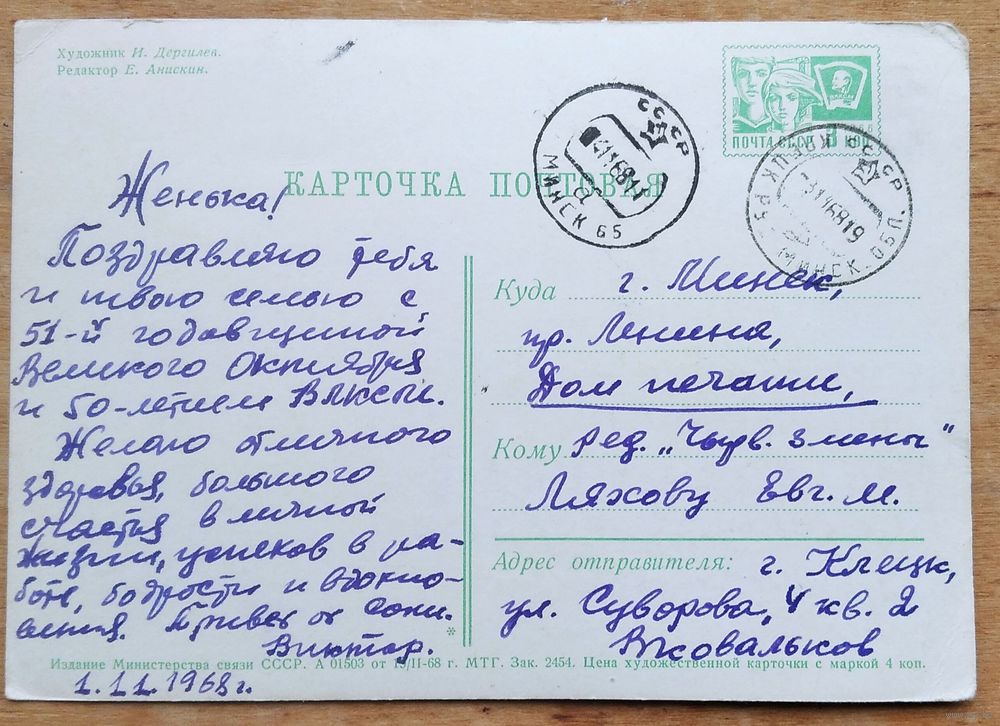 Художник И. Дергилев.
Редактор Е. Анискин.
ПОЧТА СССР
СССР
4 11 68 11
МИНСК 65
СССР
КЛЕЦК
3 11 68 19
МИНСК. ОБЛ.
КАРТОЧКА ПОЧТОВАЯ
Женька!
Поздравляю тебя
и твою семью с
51-й годовщиной
Великого Октября
и 50-летием ВЛКСМ.
Желаю отличного
здоровья, большого
счастья в личной
жизни, успехов в ра-
боте, бодрости и вдохно-
вения. Привет от Сони.
Виктор.
1.11.1968 г.
Куда г. Минск,
пр. Ленина,
Дом печати,
Кому Ред. „Чырв. змены"
Ляхову Евг. М.
Адрес отправителя: г. Клецк,
ул. Суворова, 4 кв. 2
*
Издание Министерства связи СССР. А 01503 от 19/II-68 г. МТГ. Зак. 2454. Цена художественной карточки с маркой 4 коп.